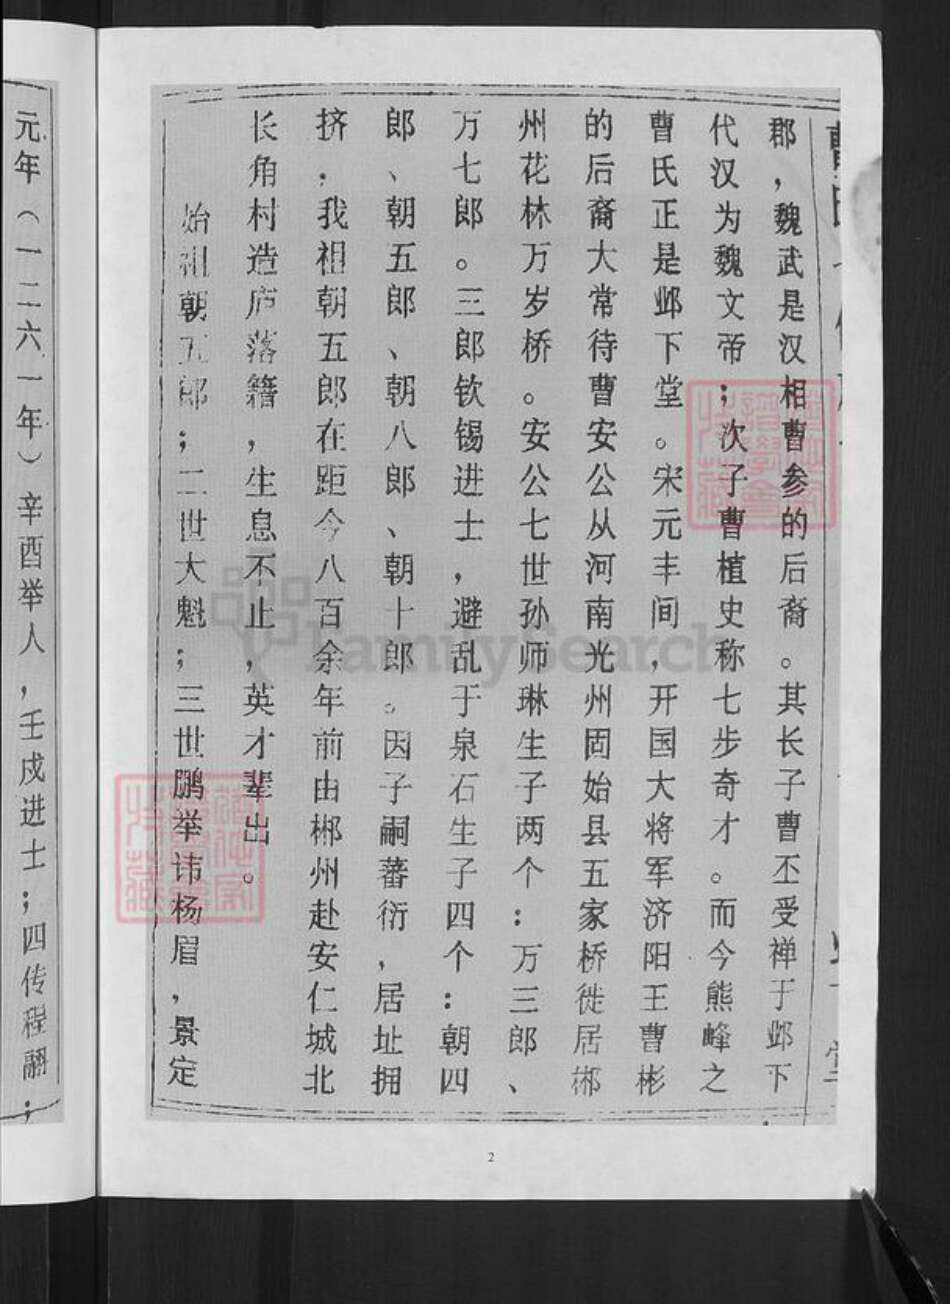 郡，魏武是汉相曹参的后裔。其长子曹丕受禅于邺下
代汉为魏文帝；次子曹植史称七步奇才。而今熊峰之
曹氏正是邺下堂。宋元丰间，开国大将军济阳王曹彬
的后裔大常待曹安公从河南光州固始县五家桥徙居郴
州花林万岁桥。安公七世孙师琳生子两个：万三郎、
万七郎。三郎钦锡进士，避乱于泉石生子四个：朝四
郎、朝五郎、朝八郎、朝十郎。因子嗣蕃衍，居址拥
挤，我祖朝五郎在距今八百余年前由郴州赴安仁城北
长角村造庐落籍，生息不止，英才辈出。
始祖朝五郎；二世大魁；三世鹏举讳杨眉，景定
元年（一二六一年）辛酉举人，壬戍进士；四传程翮；
2
FamilySearch